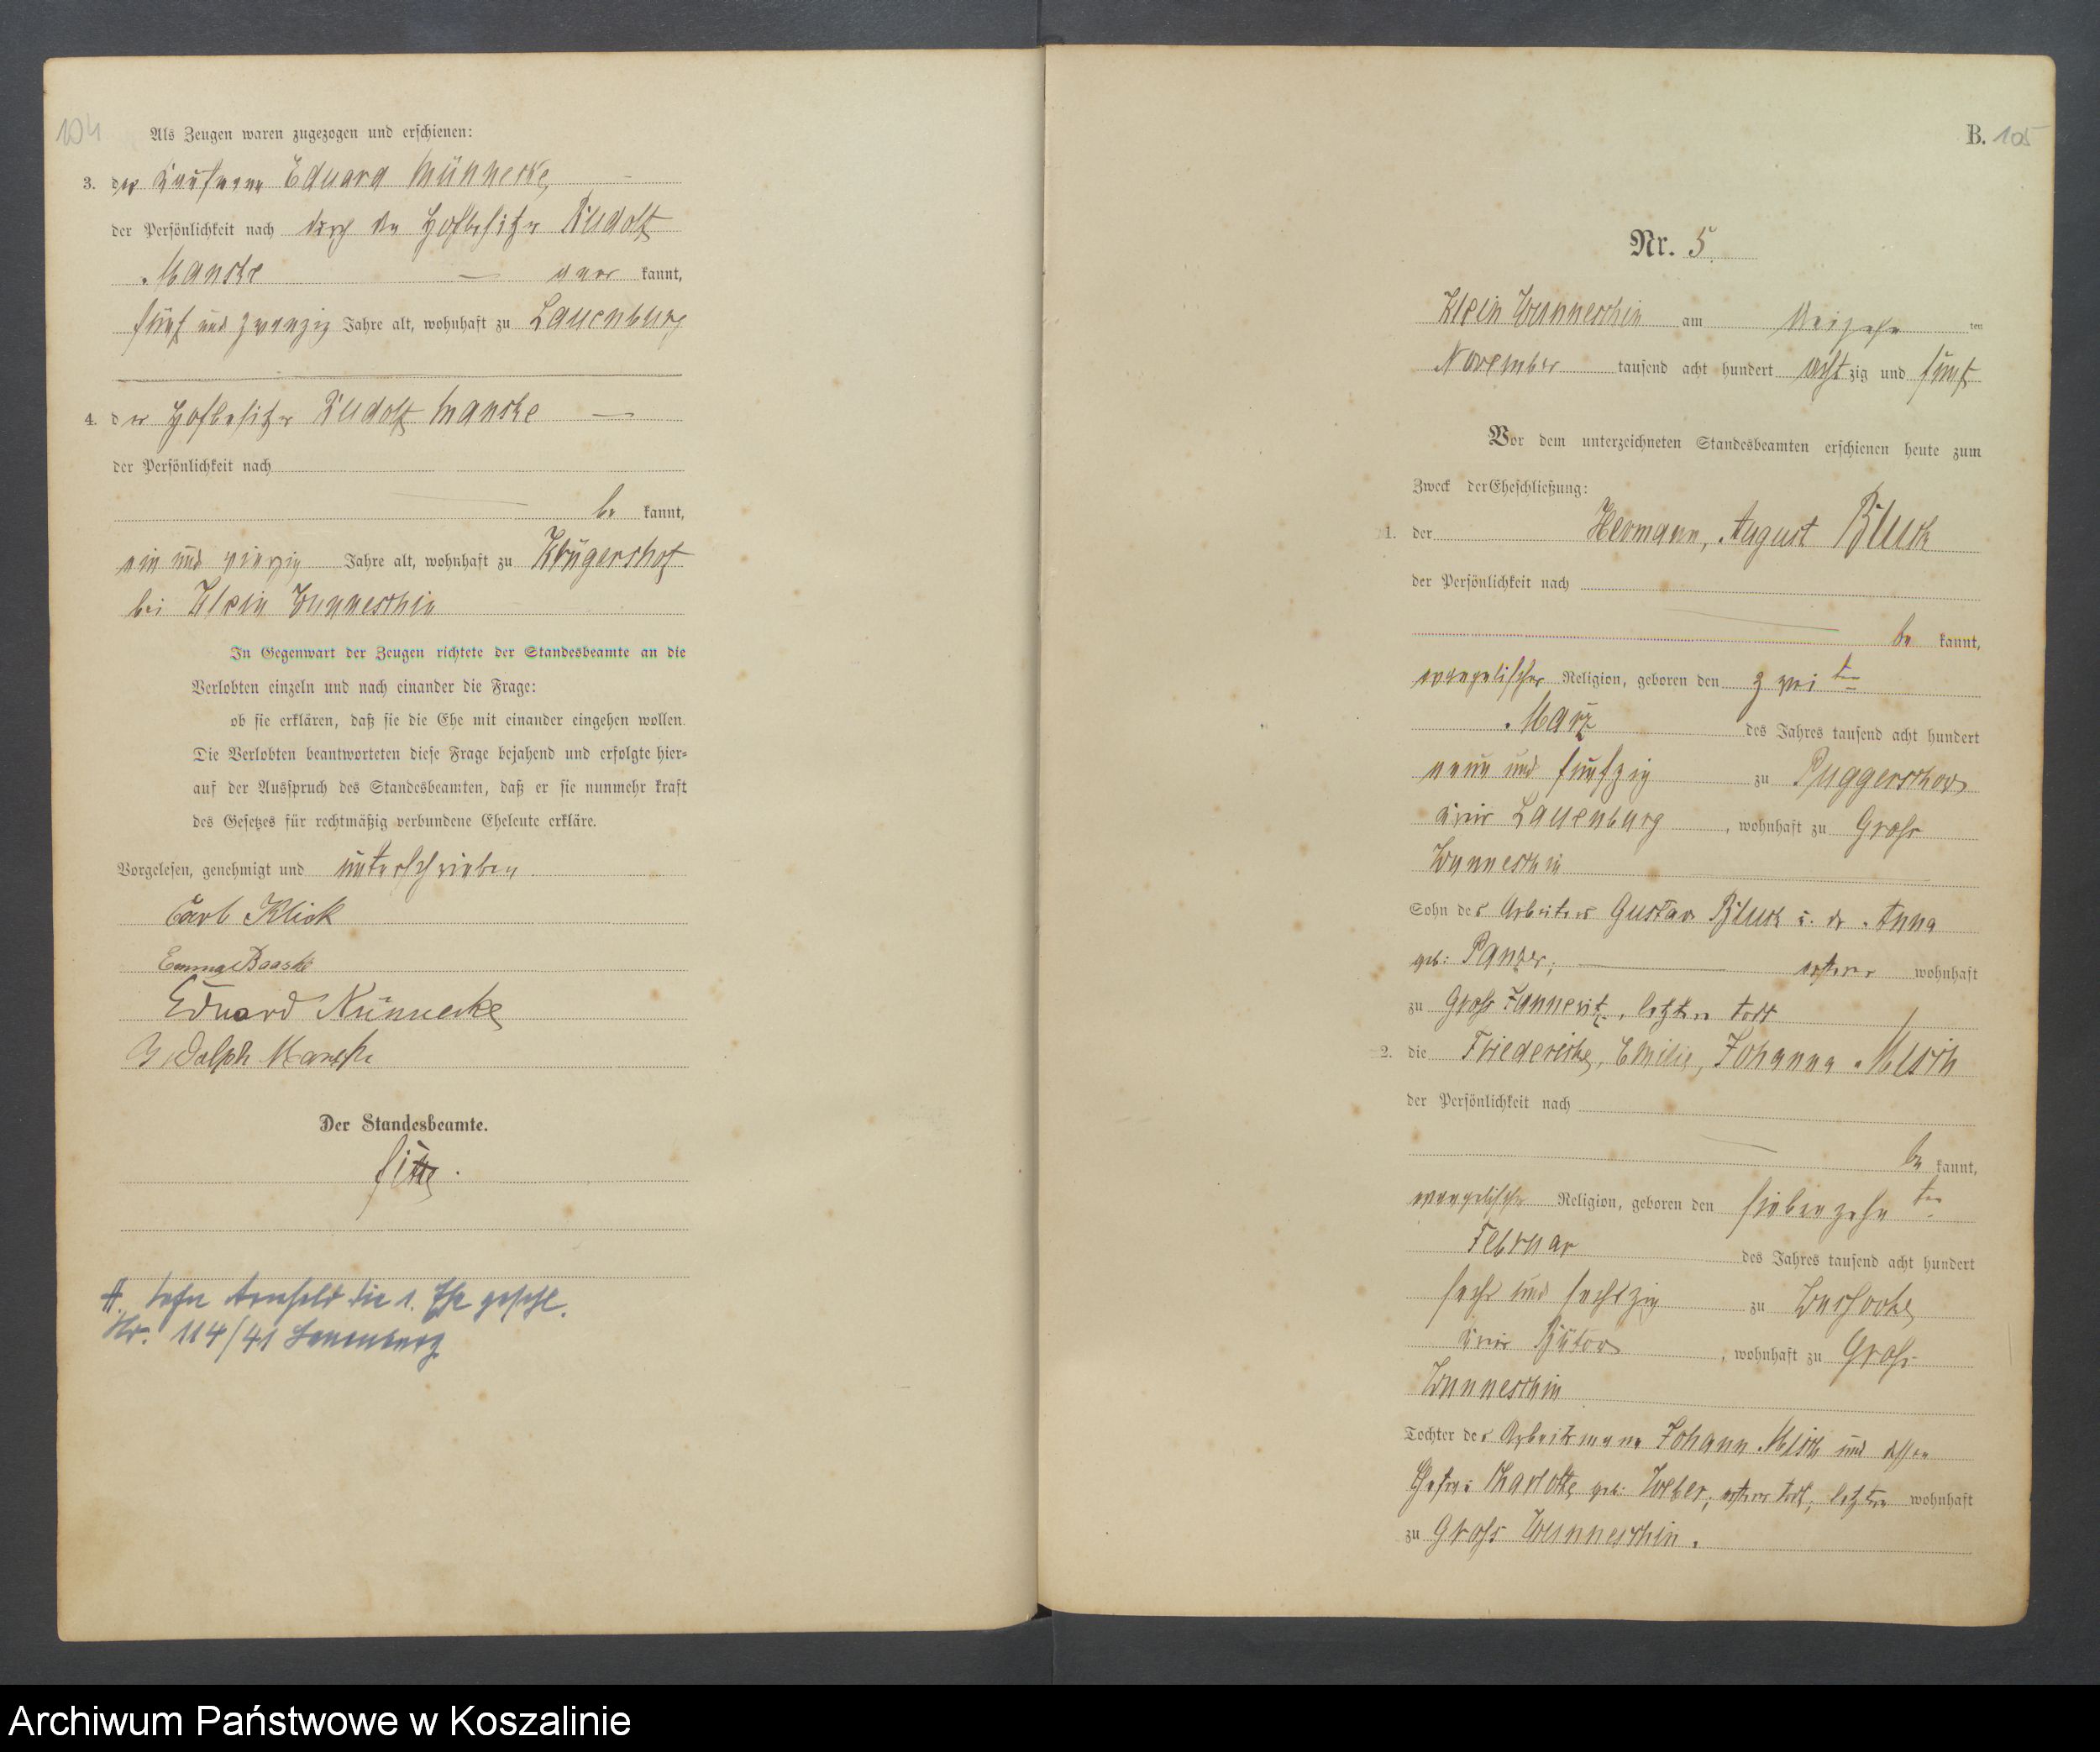 104
Als Zeugen waren zugezogen und erschienen:
3. der Kaufmann Eduard Nünnecke,
der Persönlichkeit nach durch den Hofbesitzer Rudolf
Manske — aner kannt,
fünf und zwanzig Jahre alt, wohnhaft zu Lauenburg
4. der Hofbesitzer Rudolf Manske —
der Persönlichkeit nach
be kannt,
ein und vierzig Jahre alt, wohnhaft zu Krügershof
bei Klein Wunneschin
In Gegenwart der Zeugen richtete der Standesbeamte an die
Verlobten einzeln und nach einander die Frage:
ob sie erklären, daß sie die Ehe mit einander eingehen wollen.
Die Verlobten beantworteten diese Frage bejahend und erfolgte hier-
auf der Ausspruch des Standesbeamten, daß er sie nunmehr kraft
des Gesetzes für rechtmäßig verbundene Eheleute erkläre.
Vorgelesen, genehmigt und unterschrieben
Carl Klick
Emma Baaske
Eduard Nünnecke
Rudolph Manske
Der Standesbeamte.
A. Sohn die 1. Ehe geschl.
Nr. 114/41 Lauenburg
B. 105
Nr. 5.
Klein Wunneschin am dreizehn ten
November tausend acht hundert acht zig und fünf
Vor dem unterzeichneten Standesbeamten erschienen heute zum
Zweck der Eheschließung:
1. der Hermann, August Bluck
der Persönlichkeit nach
be kannt,
evangelischer Religion, geboren den zwei ten
März des Jahres tausend acht hundert
neun und fünfzig zu Puggerschow
Kreis Lauenburg, wohnhaft zu Groß
Wunneschin
Sohn des Arbeiters Gustav Bluck u. der Anna
geb: Panzer; — ersterer wohnhaft
zu Groß Jannewitz, letztere todt
2. die Friedericke, Emilie, Johanna Misch
der Persönlichkeit nach
be kannt,
evangelischer Religion, geboren den siebenzehn ten
Februar des Jahres tausend acht hundert
sechs und sechszig zu
Kreis Bütow, wohnhaft zu Groß
Wunneschin
Tochter des Arbeitsmann Johann Misch und dessen
Ehefrau Charlotte geb: Weber; ersterer todt, letztere wohnhaft
zu Groß Wunneschin.
Archiwum Państwowe w Koszalinie